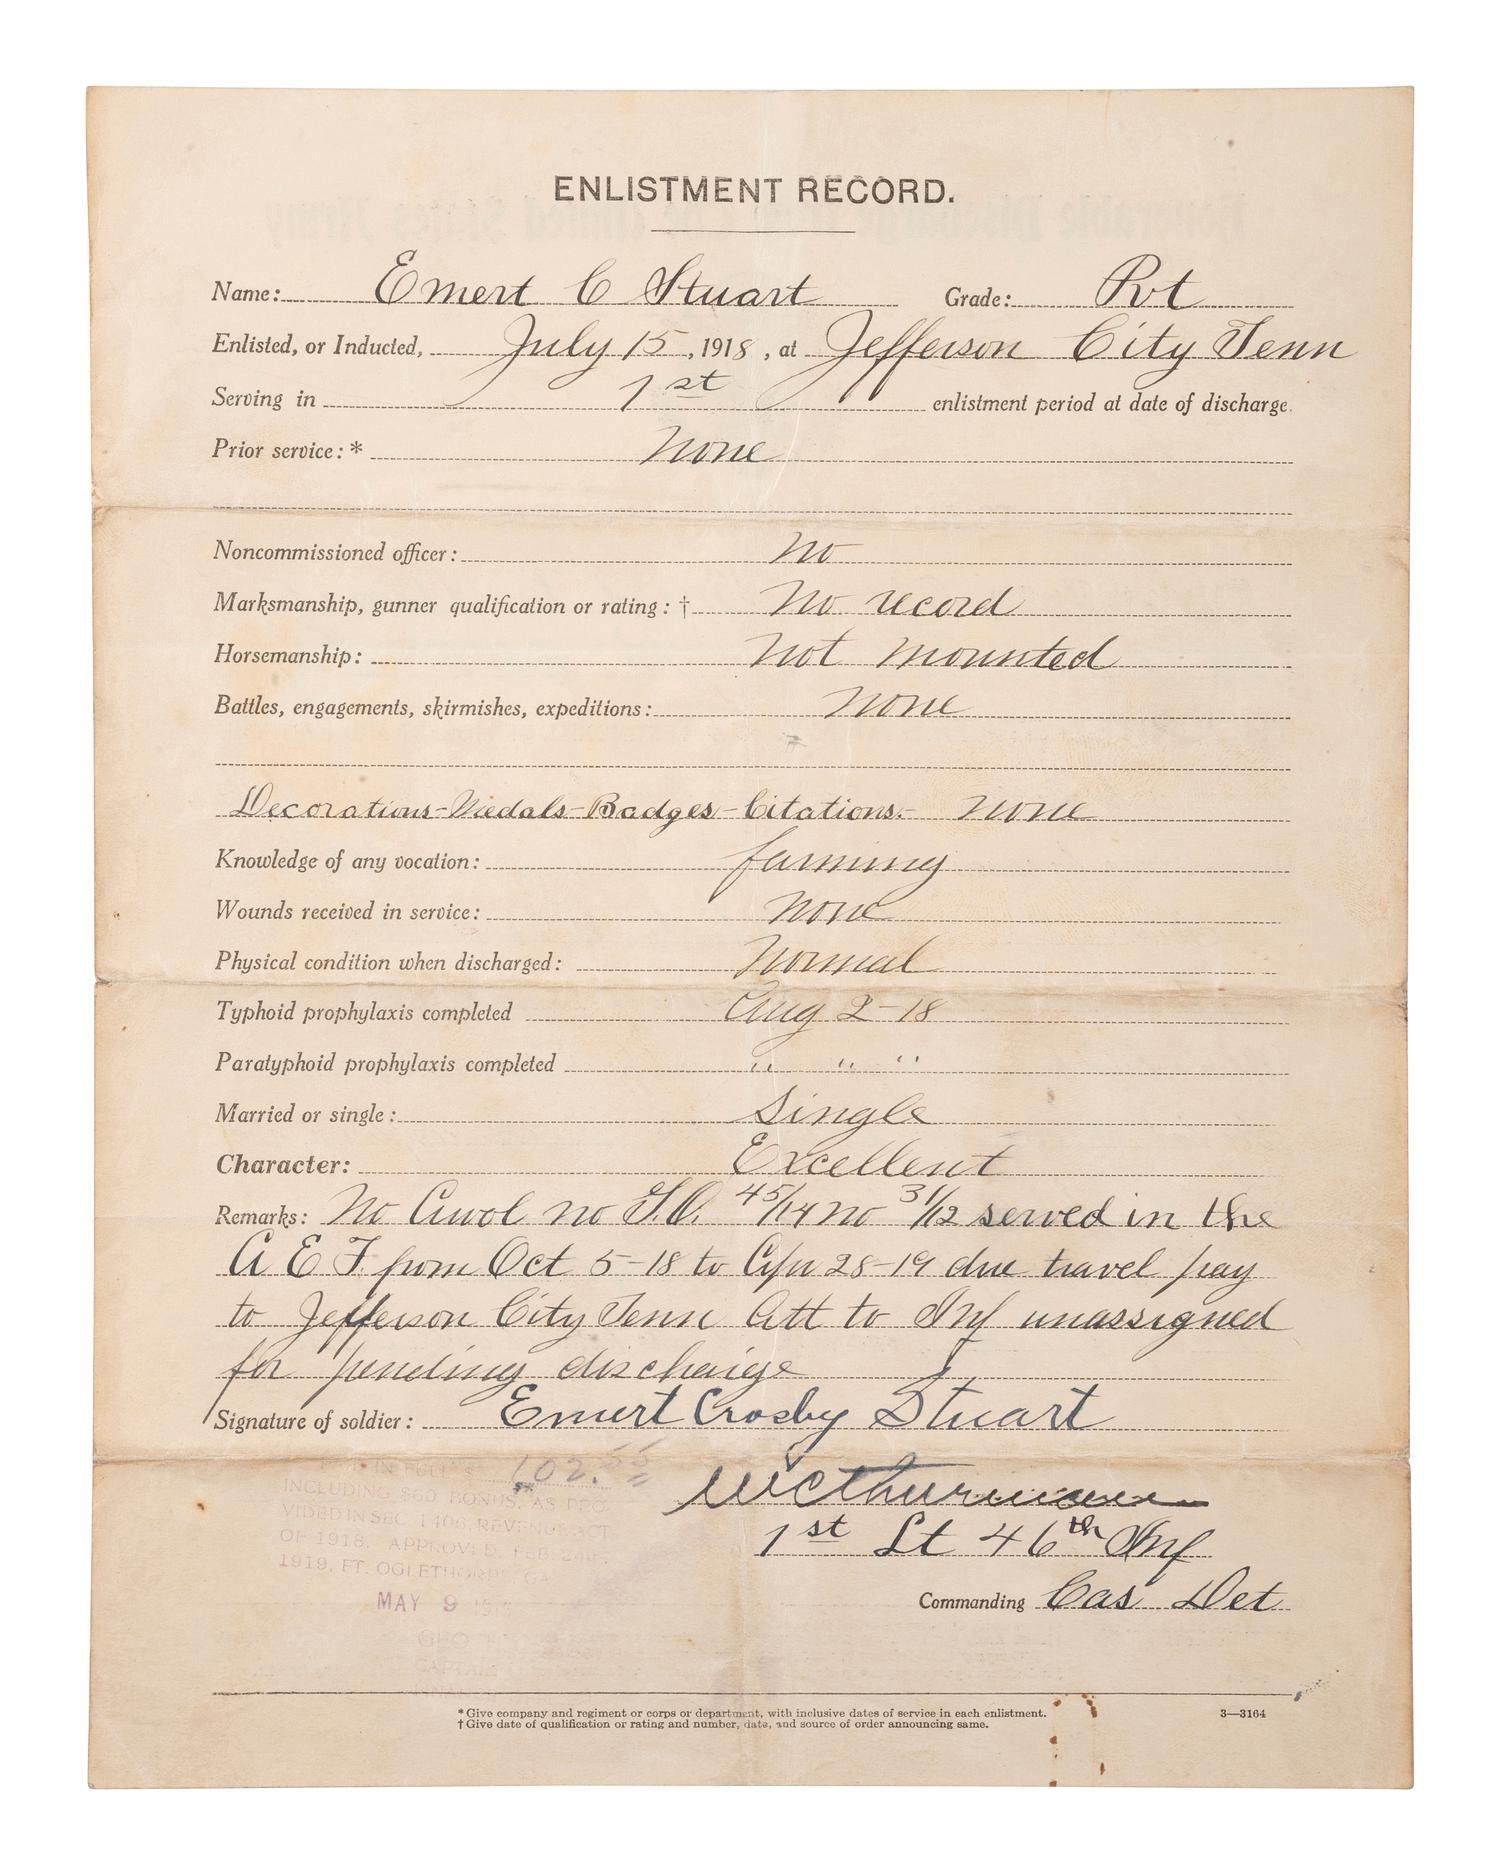 ENLISTMENT RECORD.
Name: Emert C Stuart Grade: Pvt
Enlisted, or Inducted, July 15, 1918, at Jefferson City Tenn
Serving in 1st enlistment period at date of discharge.
Prior service: * None
Noncommissioned officer: No
Marksmanship, gunner qualification or rating: † No record
Horsemanship: Not mounted
Battles, engagements, skirmishes, expeditions: None
Decorations-Medals-Badges-Citations.- None
Knowledge of any vocation: farming
Wounds received in service: None
Physical condition when discharged: Normal
Typhoid prophylaxis completed Aug 2-18
Paratyphoid prophylaxis completed " " "
Married or single: Single
Character: Excellent
Remarks: No Awol no G.O. 45/14 no 31/12 served in the
A E F from Oct 5-18 to Apr 28-19 due travel pay
to Jefferson City Tenn Att to Inf unassigned
for pending discharge
Signature of soldier: Emert Crosby Stuart
IN FULL $ 102.55
INCLUDING $60 BONUS, AS PRO-
VIDED IN SEC. 1406, REVENUE ACT
OF 1918. APPROVED FEB. 24TH,
1919, FT. OGLETHORPE GA.
MAY 9
GEO
CAPTAIN
1st Lt 46th Inf
Commanding Cas Det
* Give company and regiment or corps or department, with inclusive dates of service in each enlistment.
† Give date of qualification or rating and number, date, and source of order announcing same.
3—3164